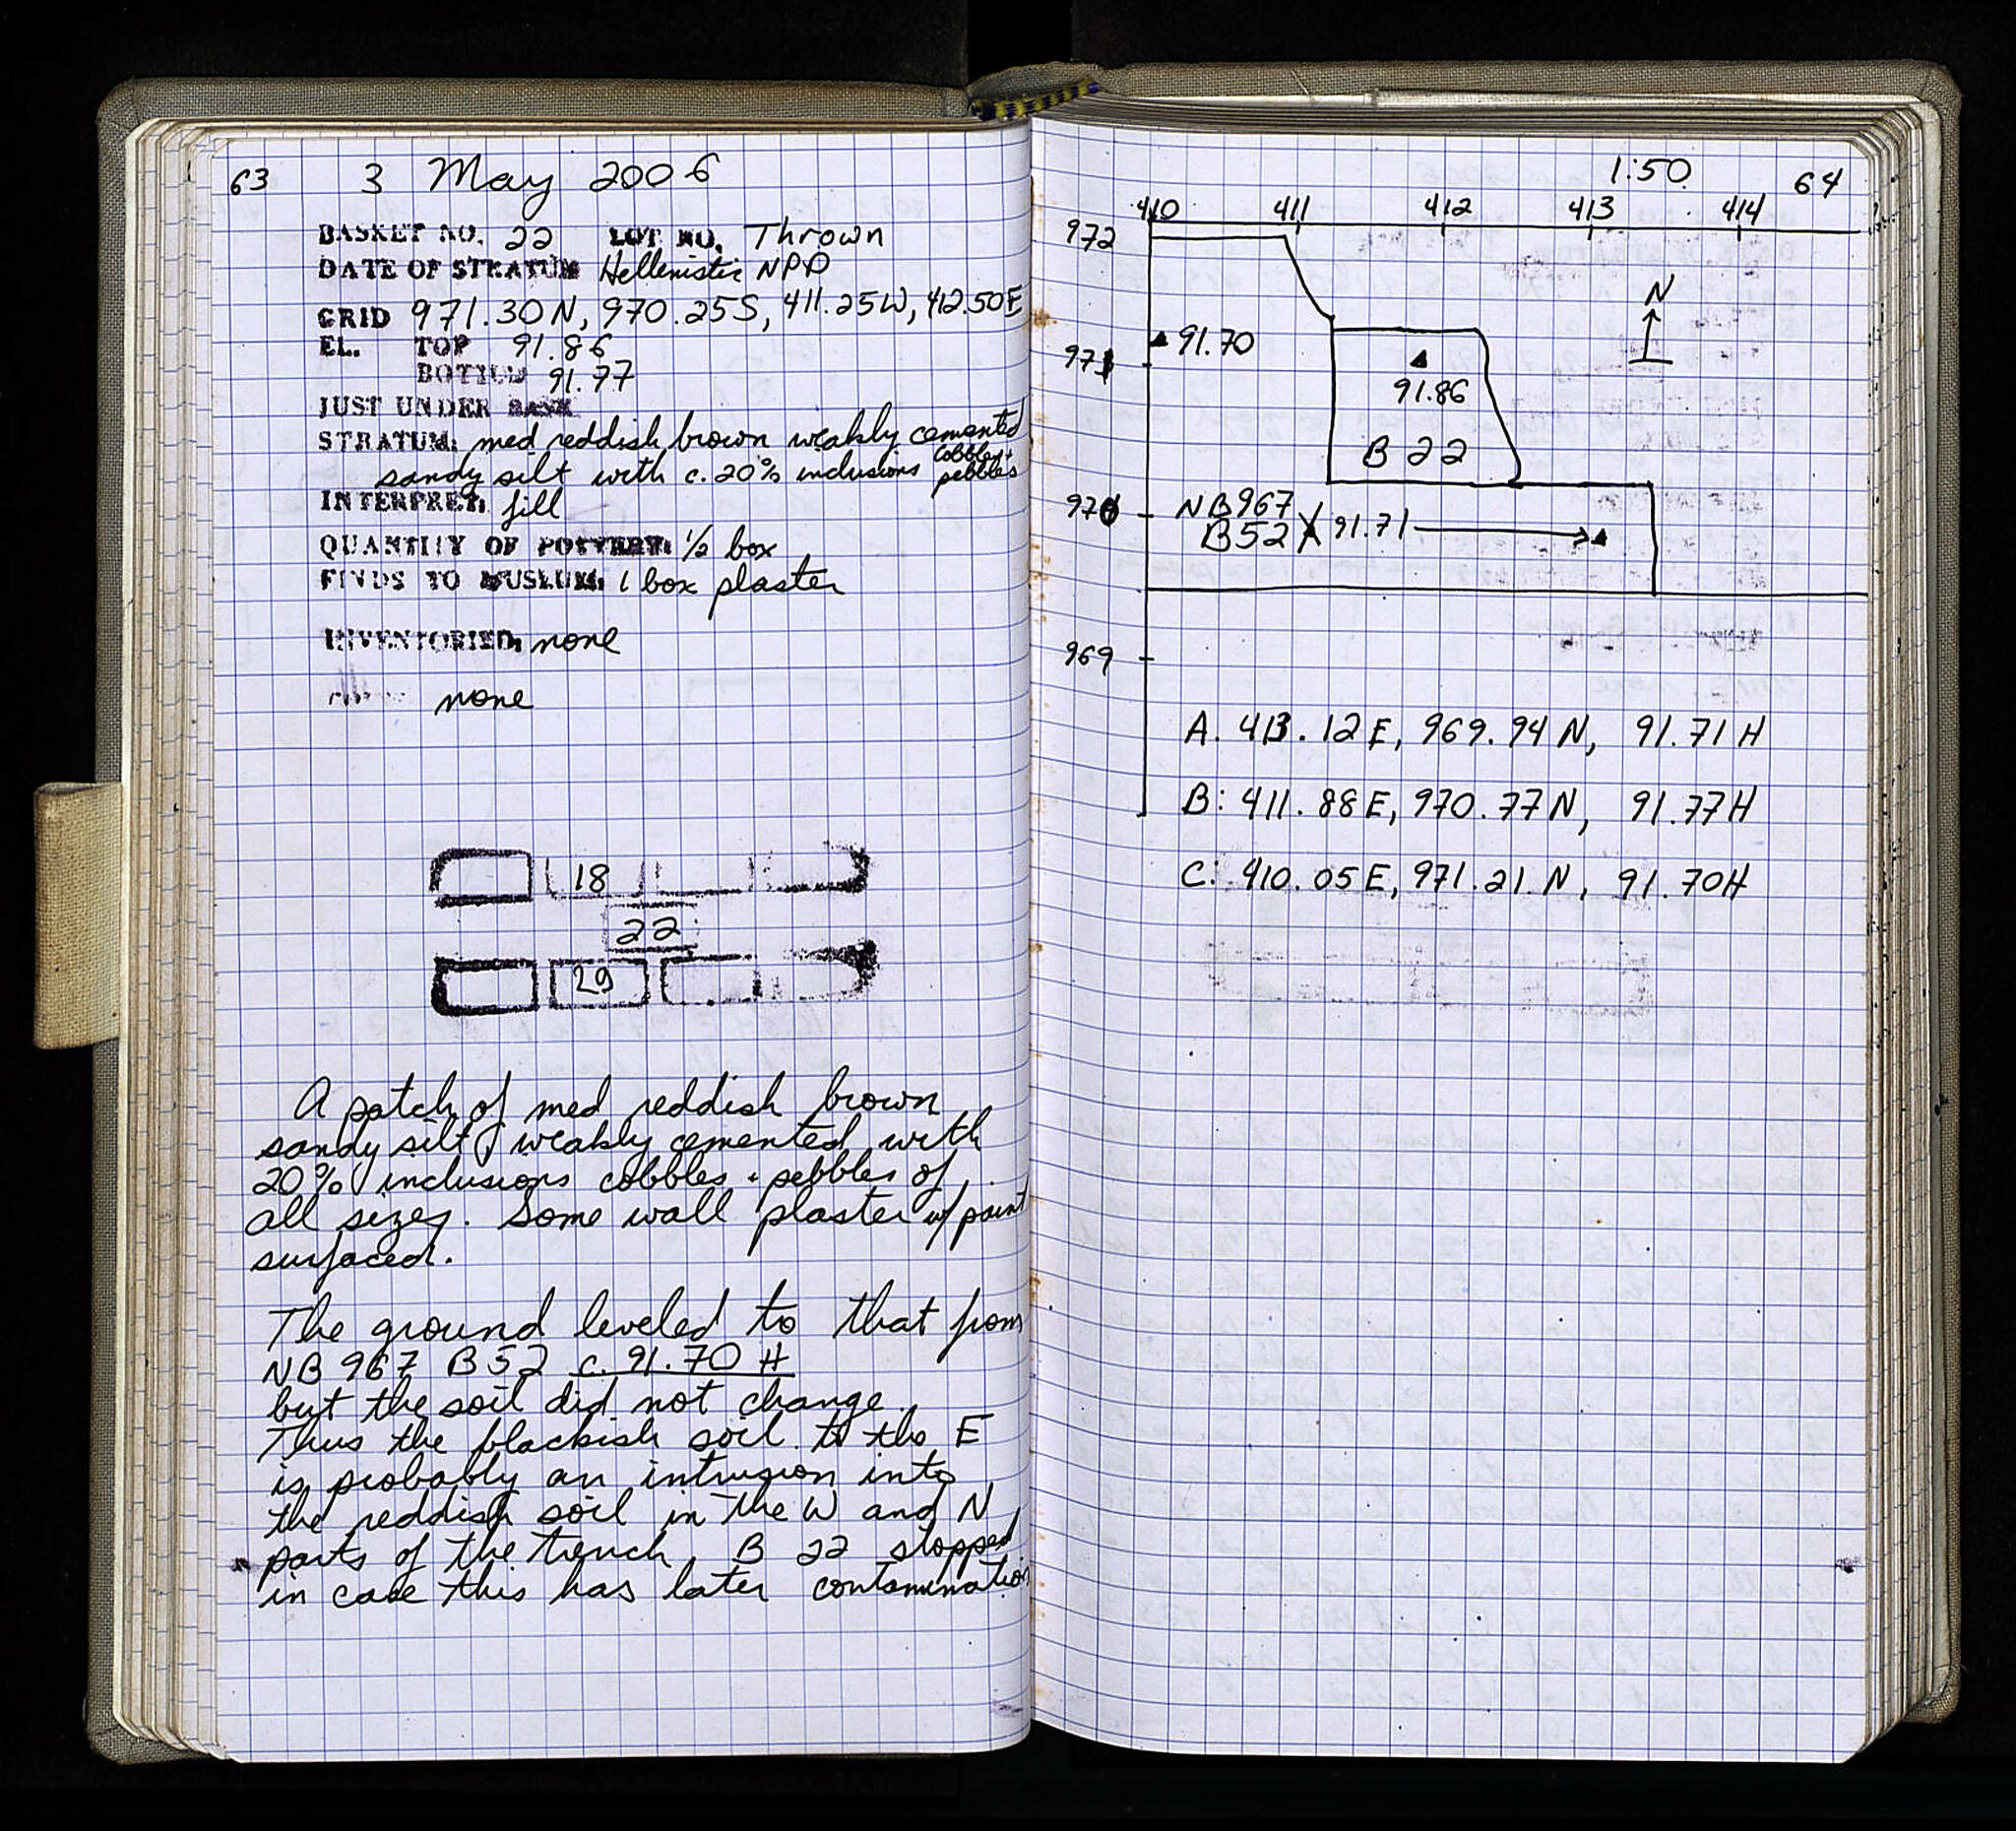 63 3 May 2006
BASKET NO. 22 LOT NO. Thrown
DATE OF STRATUM Hellenistic NPD
GRID 971.30N, 970.25S, 411.25W, 412.50E
EL. TOP 91.86
BOTTOM 91.77
JUST UNDER BASK
STRATUM: med reddish brown weakly cemented
sandy silt with c. 20% inclusions cobbles + pebbles
INTERPRET: fill
QUANTITY OF POTTERY: 1/2 box
FINDS TO MUSEUM: 1 box plaster
INVENTORIED: none
none
18
22
29
A patch of med reddish brown
sandy silt, weakly cemented with
20% inclusions cobbles + pebbles of
all sizes. Some wall plaster w/ paint
surfaced.
The ground leveled to that from
NB 967 B52 c. 91.70 H
but the soil did not change.
Thus the blackish soil to the E
is probably an intrusion into
the reddish soil in the W and N
parts of the trench. B 22 stopped
in case this has later contamination
1:50 64
410 411 412 413 414
972
N
91.70
971
91.86
B 22
970 NB967
B52 91.71
969
A. 413.12E, 969.94N, 91.71H
B: 411.88E, 970.77N, 91.77H
C: 410.05E, 971.21N, 91.70H